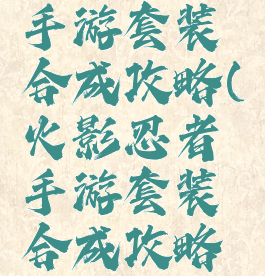 手游套装
合成攻略(
火影忍者
手游套装
合成攻略